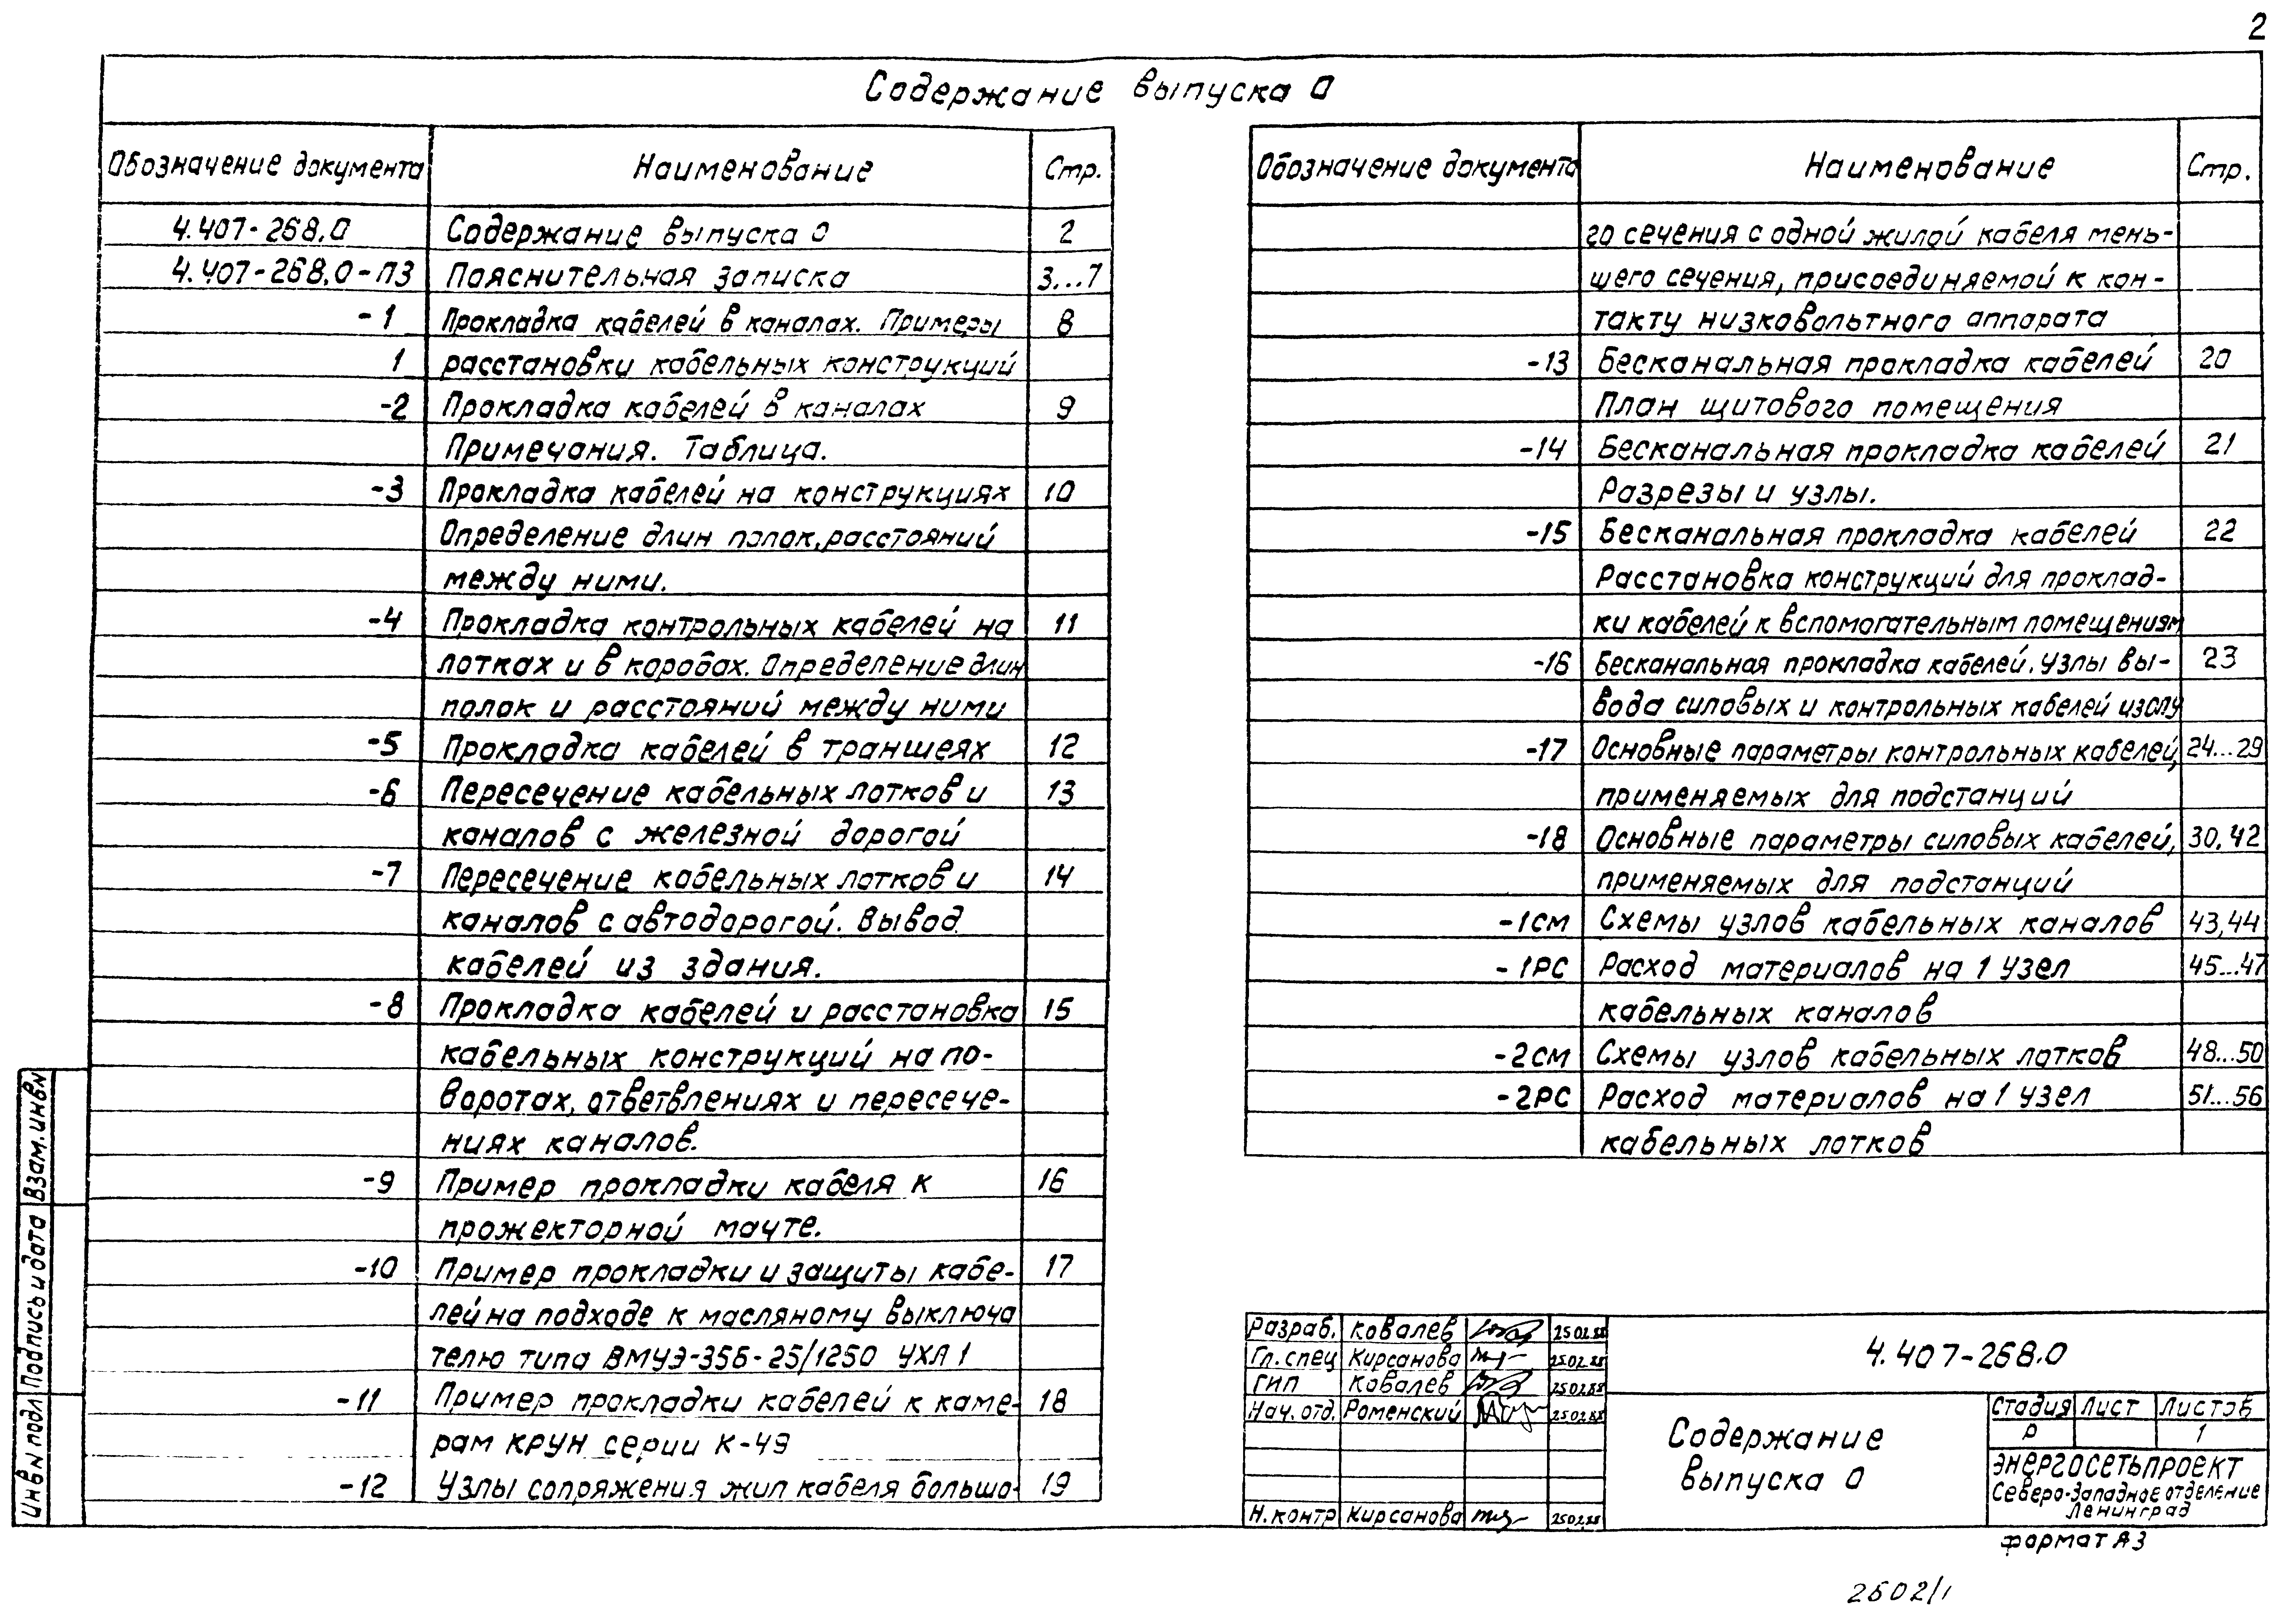 2
Содержание выпуска 0
Обозначение документа Наименование Стр.
4.407-268.0 Содержание выпуска 0 2
4.407-268.0-ПЗ Пояснительная записка 3...7
-1 Прокладка кабелей в каналах. Примеры 8
1 расстановки кабельных конструкций
-2 Прокладка кабелей в каналах 9
Примечания. Таблица.
-3 Прокладка кабелей на конструкциях 10
Определение длин полок, расстояний
между ними.
-4 Прокладка контрольных кабелей на 11
лотках и в коробах. Определение длин
полок и расстояний между ними
-5 Прокладка кабелей в траншеях 12
-6 Пересечение кабельных лотков и 13
каналов с железной дорогой
-7 Пересечение кабельных лотков и 14
каналов с автодорогой. Вывод
кабелей из здания.
-8 Прокладка кабелей и расстановка 15
кабельных конструкций на по-
воротах, ответвлениях и пересече-
ниях каналов.
-9 Пример прокладки кабеля к 16
прожекторной мачте.
-10 Пример прокладки и защиты кабе- 17
лей на подходе к масляному выключа
телю типа ВМУЭ-35Б-25/1250 УХЛ1
-11 Пример прокладки кабелей к каме- 18
рам КРУН серии К-49
-12 Узлы сопряжения жил кабеля большо- 19
Обозначение документа Наименование Стр.
го сечения с одной жилой кабеля мень-
шего сечения, присоединяемой к кон-
такту низковольтного аппарата
-13 Бесканальная прокладка кабелей 20
План щитового помещения
-14 Бесканальная прокладка кабелей 21
Разрезы и узлы.
-15 Бесканальная прокладка кабелей 22
Расстановка конструкций для проклад-
ки кабелей к вспомогательным помещениям
-16 Бесканальная прокладка кабелей. Узлы вы- 23
вода силовых и контрольных кабелей из ОПУ
-17 Основные параметры контрольных кабелей, 24...29
применяемых для подстанций
-18 Основные параметры силовых кабелей, 30,42
применяемых для подстанций
-1СМ Схемы узлов кабельных каналов 43,44
-1РС Расход материалов на 1 узел 45...47
кабельных каналов
-2СМ Схемы узлов кабельных лотков 48...50
-2РС Расход материалов на 1 узел 51...56
кабельных лотков
Взам. инв N
Подпись и дата
Инв N подл
Разраб. Ковалев 25.02.88
Гл. спец Кирсанова 25.02.88
ГИП Ковалев 25.02.88
Нач. отд. Роменский 25.02.88
Н. контр Кирсанова 25.02.88
4.407-268.0
Содержание
выпуска 0
Стадия Лист Листов
Р 1
ЭНЕРГОСЕТЬПРОЕКТ
Северо-Западное отделение
Ленинград
формат А3
2502/1